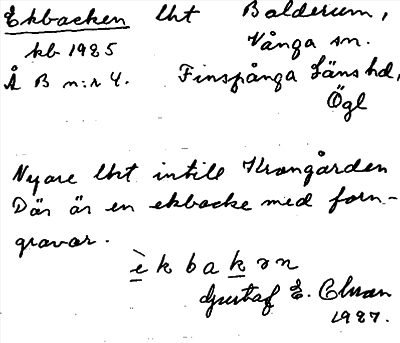 Ekbacken lht Balderum,
kb 1985 Vånga sn.
Å B n:r 4. Finspånga Läns hd,
Ögl
Nyare lht intill Krongården
Där är en ekbacke med forn-
gravar.
è k b a k ə n
Gustaf E.
1987.